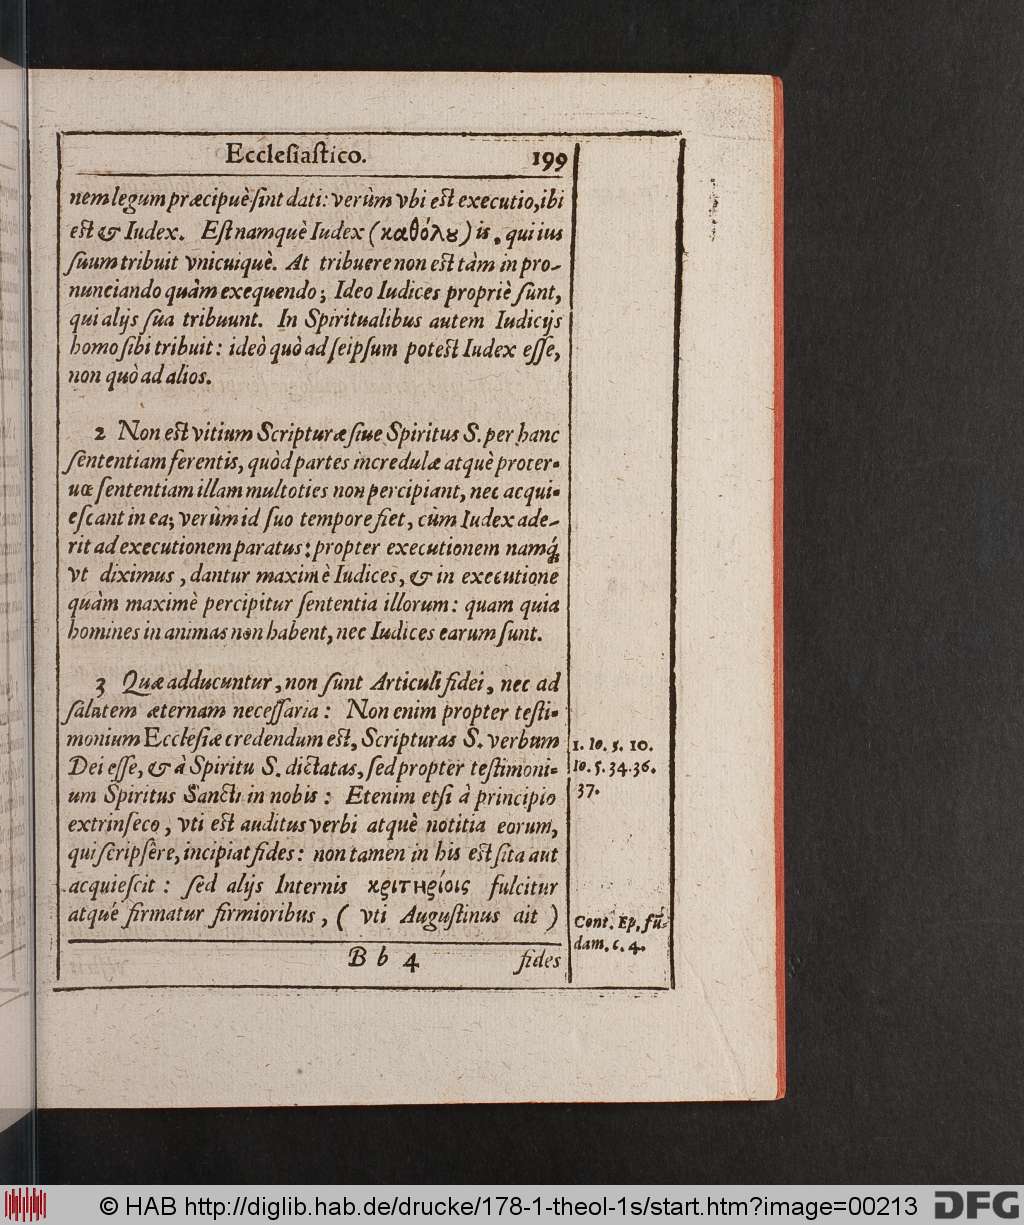 Eccleſiaſtico. 199
nem legum præcipuè ſint dati: verùm vbi eſt executio, ibi
eſt & Iudex. Eſt namquè Iudex (καθόλȣ) is, qui ius
ſuum tribuit vnicuiquè. At tribuere non eſt tàm in pro-
nunciando quàm exequendo; Ideo Iudices propriè ſunt,
qui alijs ſua tribuunt. In Spiritualibus autem Iudicijs
homo ſibi tribuit: ideò quò ad ſeipſum poteſt Iudex eſſe,
non quò ad alios.
2 Non eſt vitium Scripturæ ſiue Spiritus S. per hanc
ſententiam ferentis, quòd partes incredulæ atquè proter-
uæ ſententiam illam multoties non percipiant, nec acqui-
eſcant in ea; verùm id ſuo tempore fiet, cùm Iudex ade-
rit ad executionem paratus: propter executionem namq́;
vt diximus, dantur maximè Iudices, & in executione
quàm maximè percipitur ſententia illorum: quam quia
homines in animas non habent, nec Iudices earum ſunt.
3 Quæ adducuntur, non ſunt Articuli fidei, nec ad
ſalutem æternam neceſſaria: Non enim propter teſti-
monium Eccleſiæ credendum eſt, Scripturas S. verbum
Dei eſſe, & à Spiritu S. dictatas, ſed propter teſtimoni-
um Spiritus Sancti in nobis: Etenim etſi à principio
extrinſeco, vti eſt auditus verbi atquè notitia eorum,
qui ſcripſêre, incipiat fides: non tamen in his eſt ſita aut
acquieſcit: ſed alijs Internis κριτηρίοις fulcitur
atquè firmatur firmioribus, (vti Auguſtinus ait)
B b 4 fides
1. Io. 5. 10.
Io. 5. 34. 36.
37.
Cont. Ep. fũ-
dam. c. 4.
© HAB http://diglib.hab.de/drucke/178-1-theol-1s/start.htm?image=00213
DFG